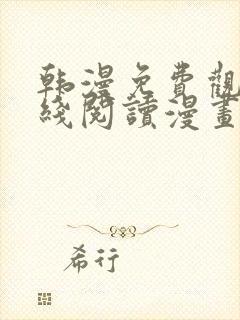 韩漫免費觀
綫閱讀漫畫
希行